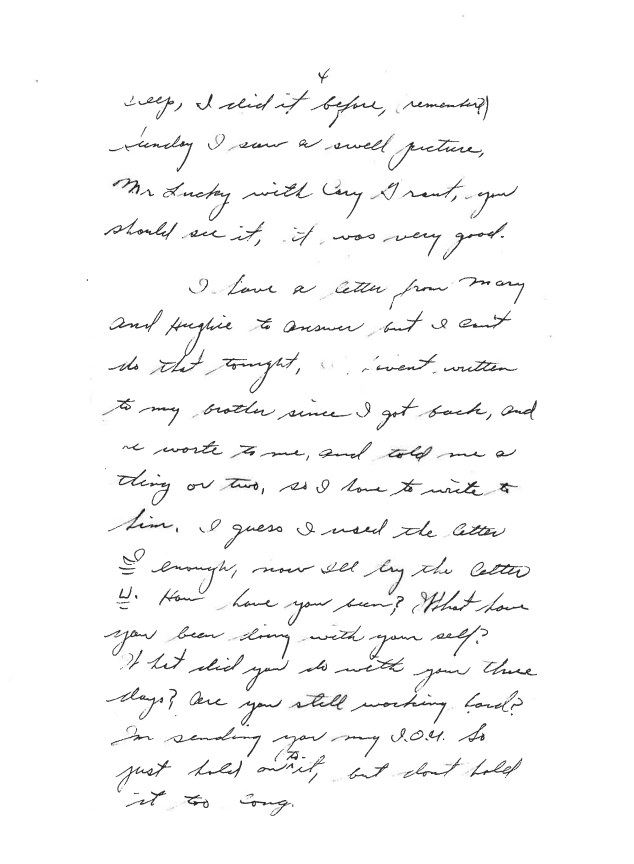 4
sleep, I did it before, (remember?)
Sunday I saw a swell picture,
Mr Lucky with Cary Grant, you
should see it, it was very good.
I have a letter from Mary
and Hughie to answer but I can't
do that tonight, I haven't written
to my brother since I got back, and
he worte to me, and told me a
thing or two, so I have to write to
him. I guess I used the letter
I enough, now I'll try the letter
U. How have you been? What have
you been doing with your self?
What did you do with your three
days? Are you still working hard?
Im sending you my I.O.U. So
just hold on to it, but dont hold
it too long.